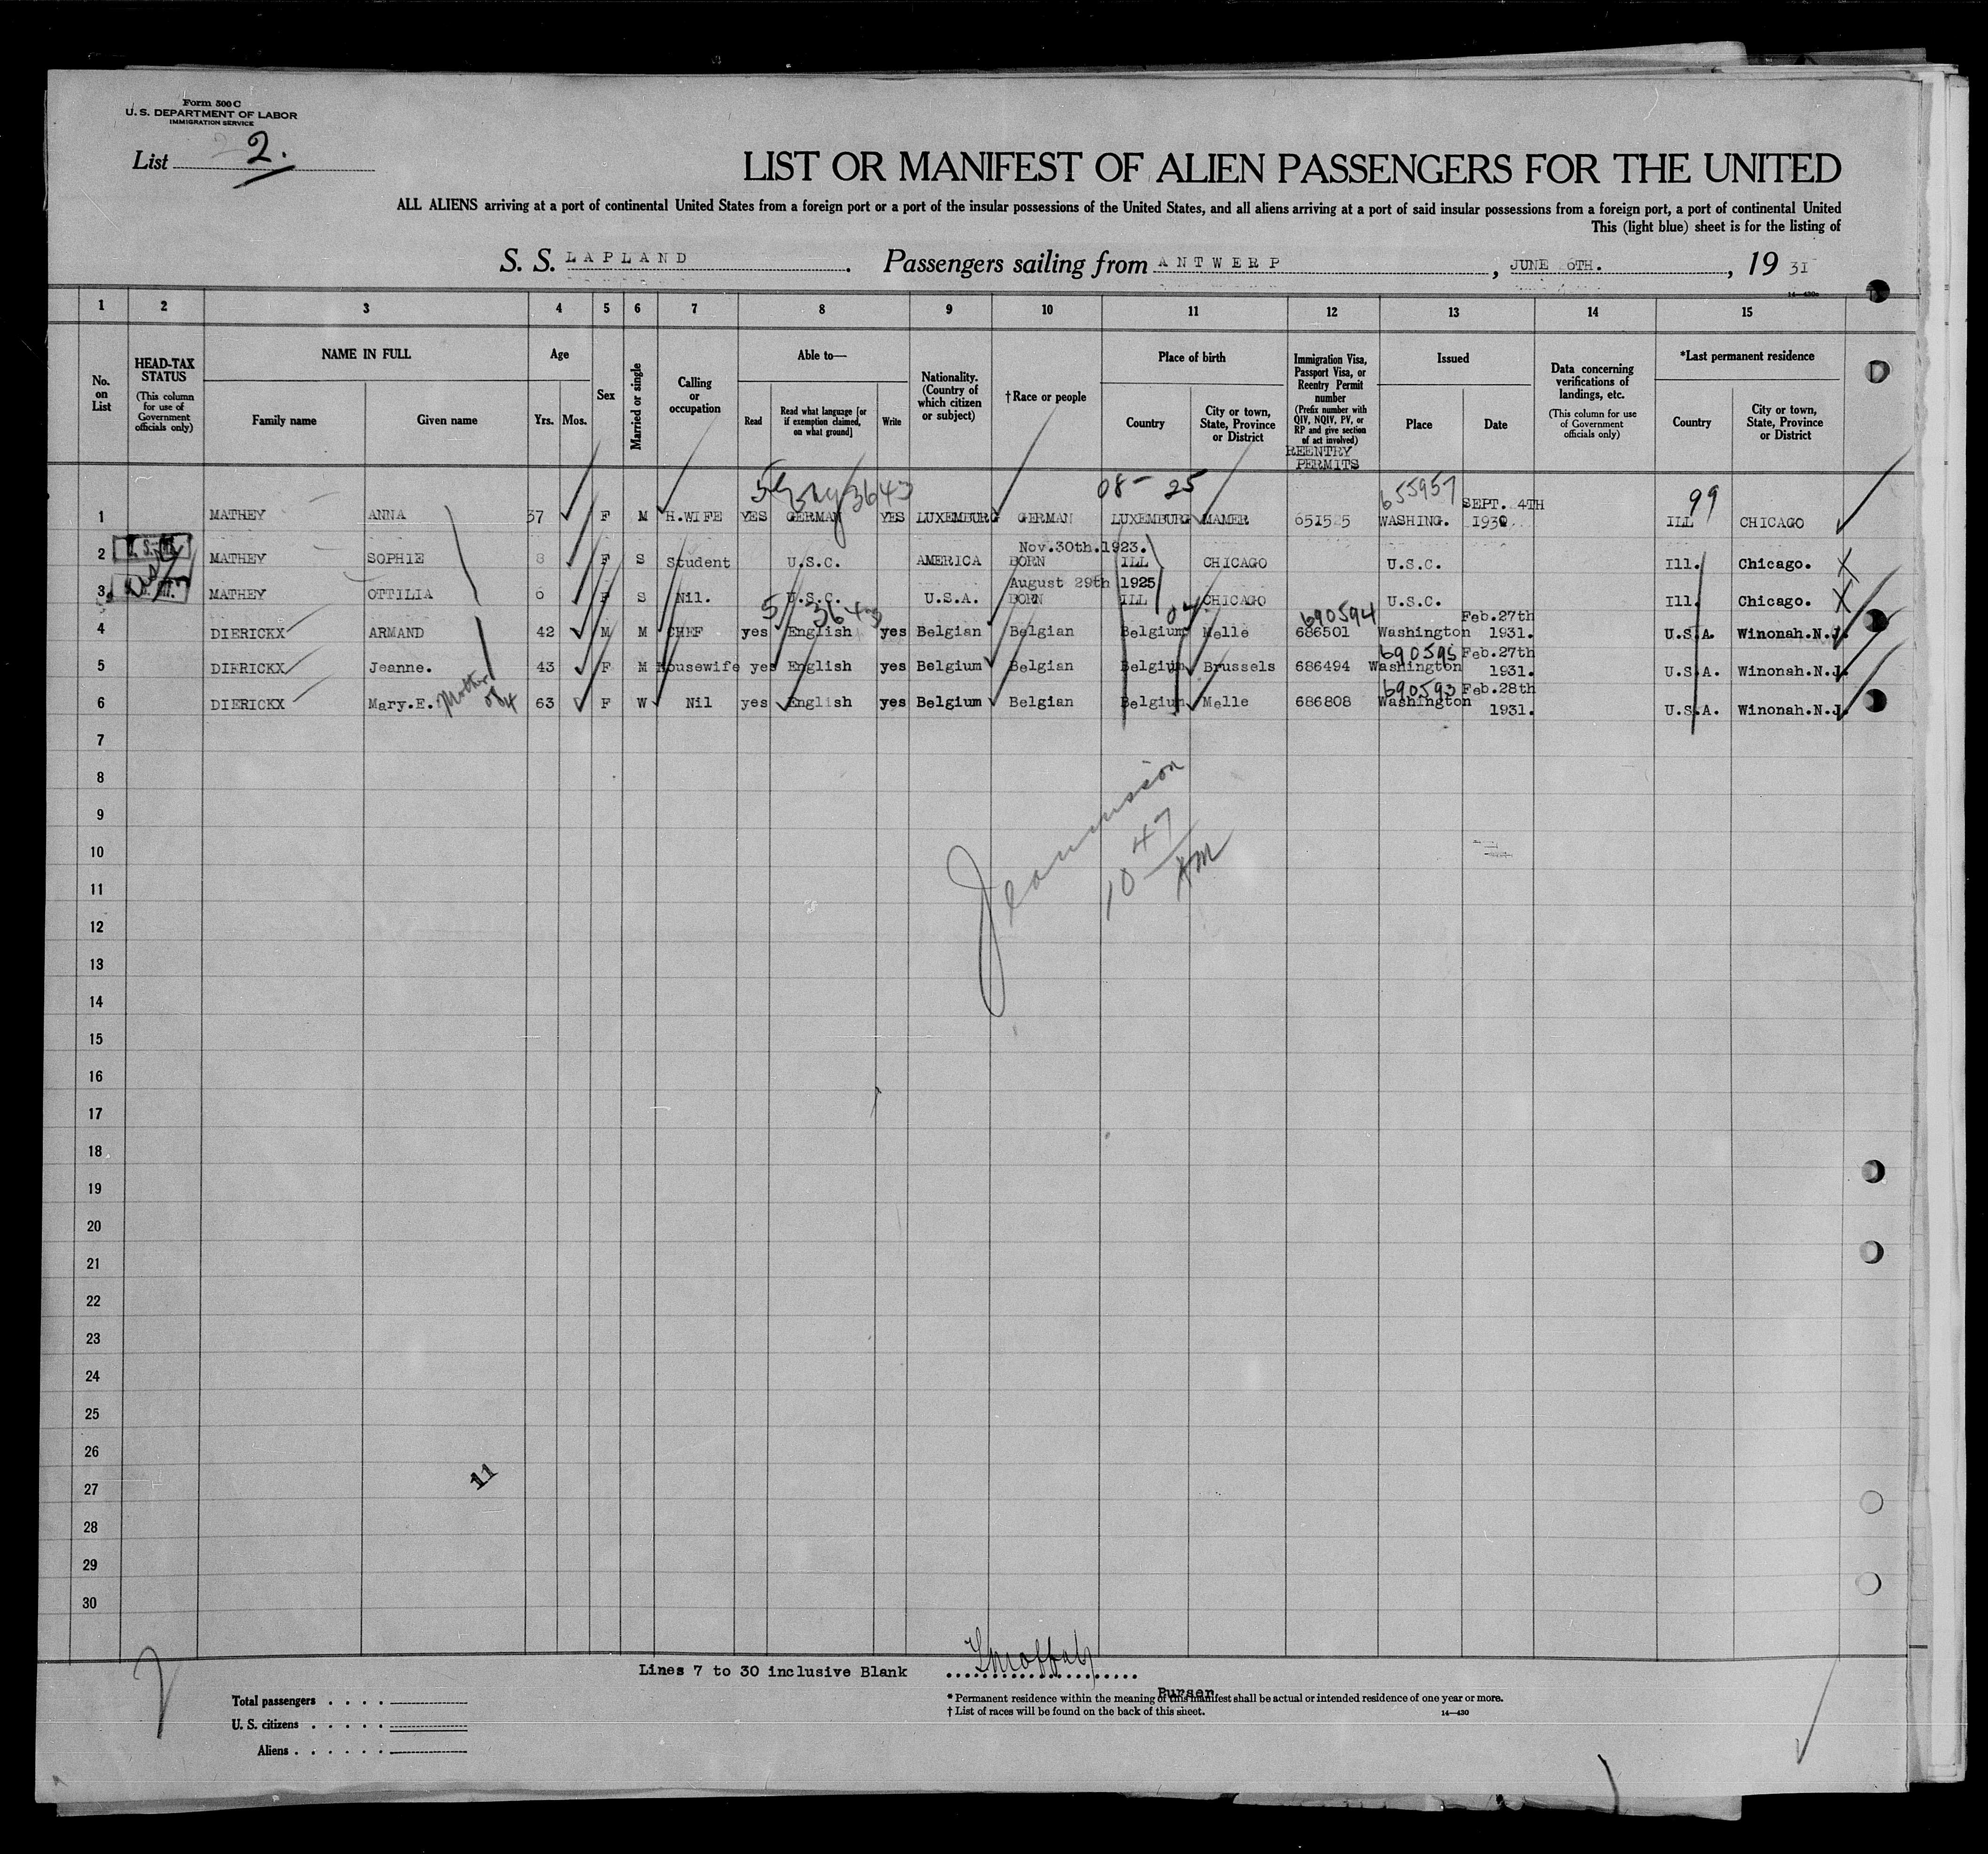 Form 500 C
U. S. DEPARTMENT OF LABOR
IMMIGRATION SERVICE
List 2.
LIST OR MANIFEST OF ALIEN PASSENGERS FOR THE UNITED
ALL ALIENS arriving at a port of continental United States from a foreign port or a port of the insular possessions of the United States, and all aliens arriving at a port of said insular possessions from a foreign port, a port of continental United
This (light blue) sheet is for the listing of
S. S. LAPLAND. Passengers sailing from ANTWERP, JUNE 6TH., 19 31
14—430a
1 2 3 4 5 6 7 8 9 10 11 12 13 14 15
No. on List
HEAD-TAX STATUS (This column for use of Government officials only)
NAME IN FULL
Family name Given name
Age
Yrs. Mos.
Sex
Married or single
Calling or occupation
Able to—
Read Read what language [or if exemption claimed, on what ground] Write
Nationality. (Country of which citizen or subject)
†Race or people
Place of birth
Country City or town, State, Province or District
Immigration Visa, Passport Visa, or Reentry Permit number (Prefix number with QIV, NQIV, PV, or RP and give section of act involved)
REENTRY PERMITS
Issued
Place Date
Data concerning verifications of landings, etc. (This column for use of Government officials only)
*Last permanent residence
Country City or town, State, Province or District
08- 25 655957 99
1 MATHEY ANNA 37 F M H.WIFE YES GERMAN YES LUXEMBURG GERMAN LUXEMBURG MAMER 651525 WASHING. SEPT. 4TH 1930 ILL CHICAGO
2 MATHEY SOPHIE 8 F S Student U.S.C. AMERICA Nov.30th.1923. BORN ILL CHICAGO U.S.C. Ill. Chicago.
3 MATHEY OTTILIA 6 F S Nil. U.S.C. U.S.A. August 29th 1925 BORN ILL CHICAGO U.S.C. Ill. Chicago.
690594
4 DIERICKX ARMAND 42 M M CHEF yes English yes Belgian Belgian Belgium Melle 686501 Washington Feb.27th 1931. U.S.A. Winonah.N.J.
690595
5 DIERICKX Jeanne. 43 F M Housewife yes English yes Belgium Belgian Belgium Brussels 686494 Washington Feb.27th 1931. U.S.A. Winonah.N.J.
690593
6 DIERICKX Mary.E. Mother of 4 63 F W Nil yes English yes Belgium Belgian Belgium Melle 686808 Washington Feb.28th 1931. U.S.A. Winonah.N.J.
7
8
9
10
10 47 AM
11
12
13
14
15
16
17
18
19
20
21
22
23
24
25
26
27
11
28
29
30
Lines 7 to 30 inclusive Blank
Purser
Total passengers
U. S. citizens
Aliens
* Permanent residence within the meaning of this manifest shall be actual or intended residence of one year or more.
† List of races will be found on the back of this sheet.
14—430